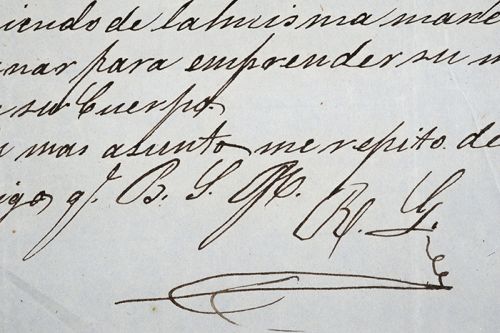 iendo de la misma mane
nar para emprender su m
su Cuerpo.
mas asunto me repito de
igo q. B. S. M.
R. L.